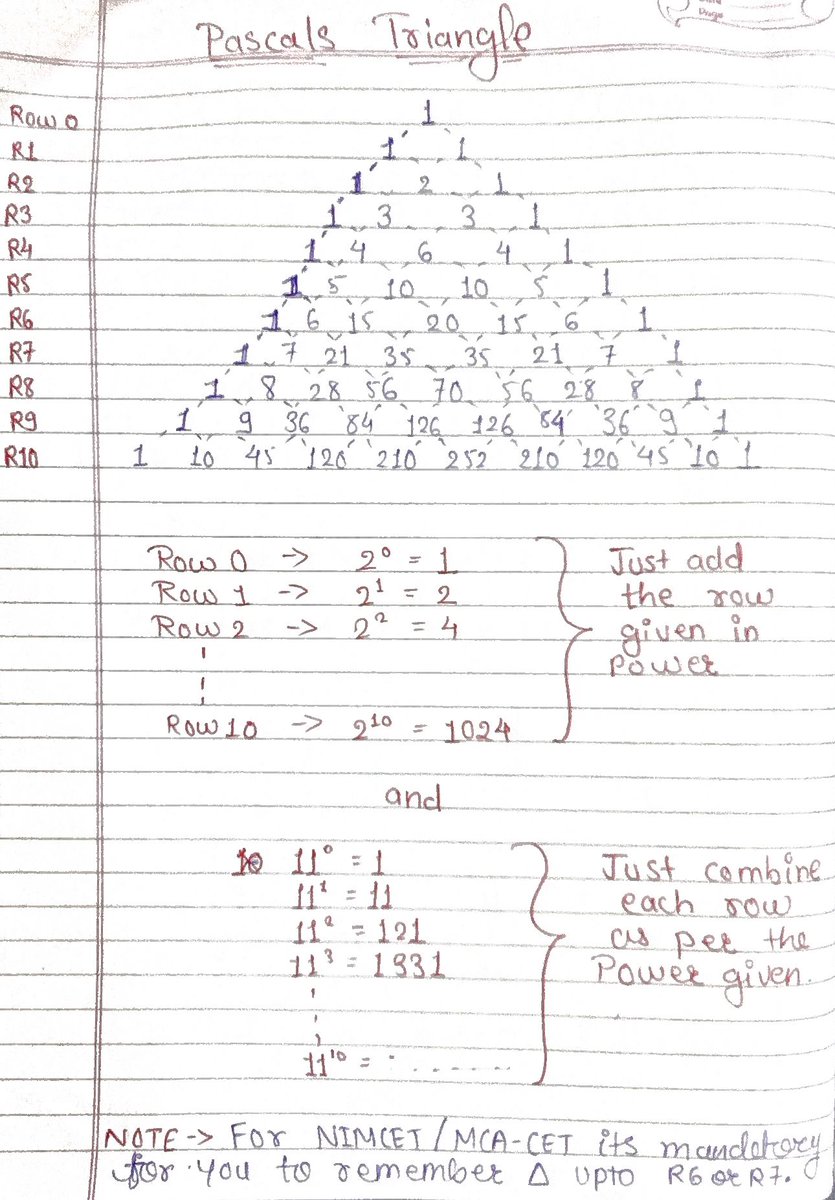 Pascals Triangle
Row 0 1
R1 1 1
R2 1 2 1
R3 1 3 3 1
R4 1 4 6 4 1
R5 1 5 10 10 5 1
R6 1 6 15 20 15 6 1
R7 1 7 21 35 35 21 7 1
R8 1 8 28 56 70 56 28 8 1
R9 1 9 36 84 126 126 84 36 9 1
R10 1 10 45 120 210 252 210 120 45 10 1
Row 0 -> 2⁰ = 1 Just add
Row 1 -> 2¹ = 2 the row
Row 2 -> 2² = 4 given in
Power
Row 10 -> 2¹⁰ = 1024
and
11⁰ = 1 Just combine
11¹ = 11 each row
11² = 121 as per the
11³ = 1331 Power given.
11¹⁰ = .......
NOTE -> For NIMCET / MCA-CET its mandatory
for you to remember Δ upto R6 or R7.